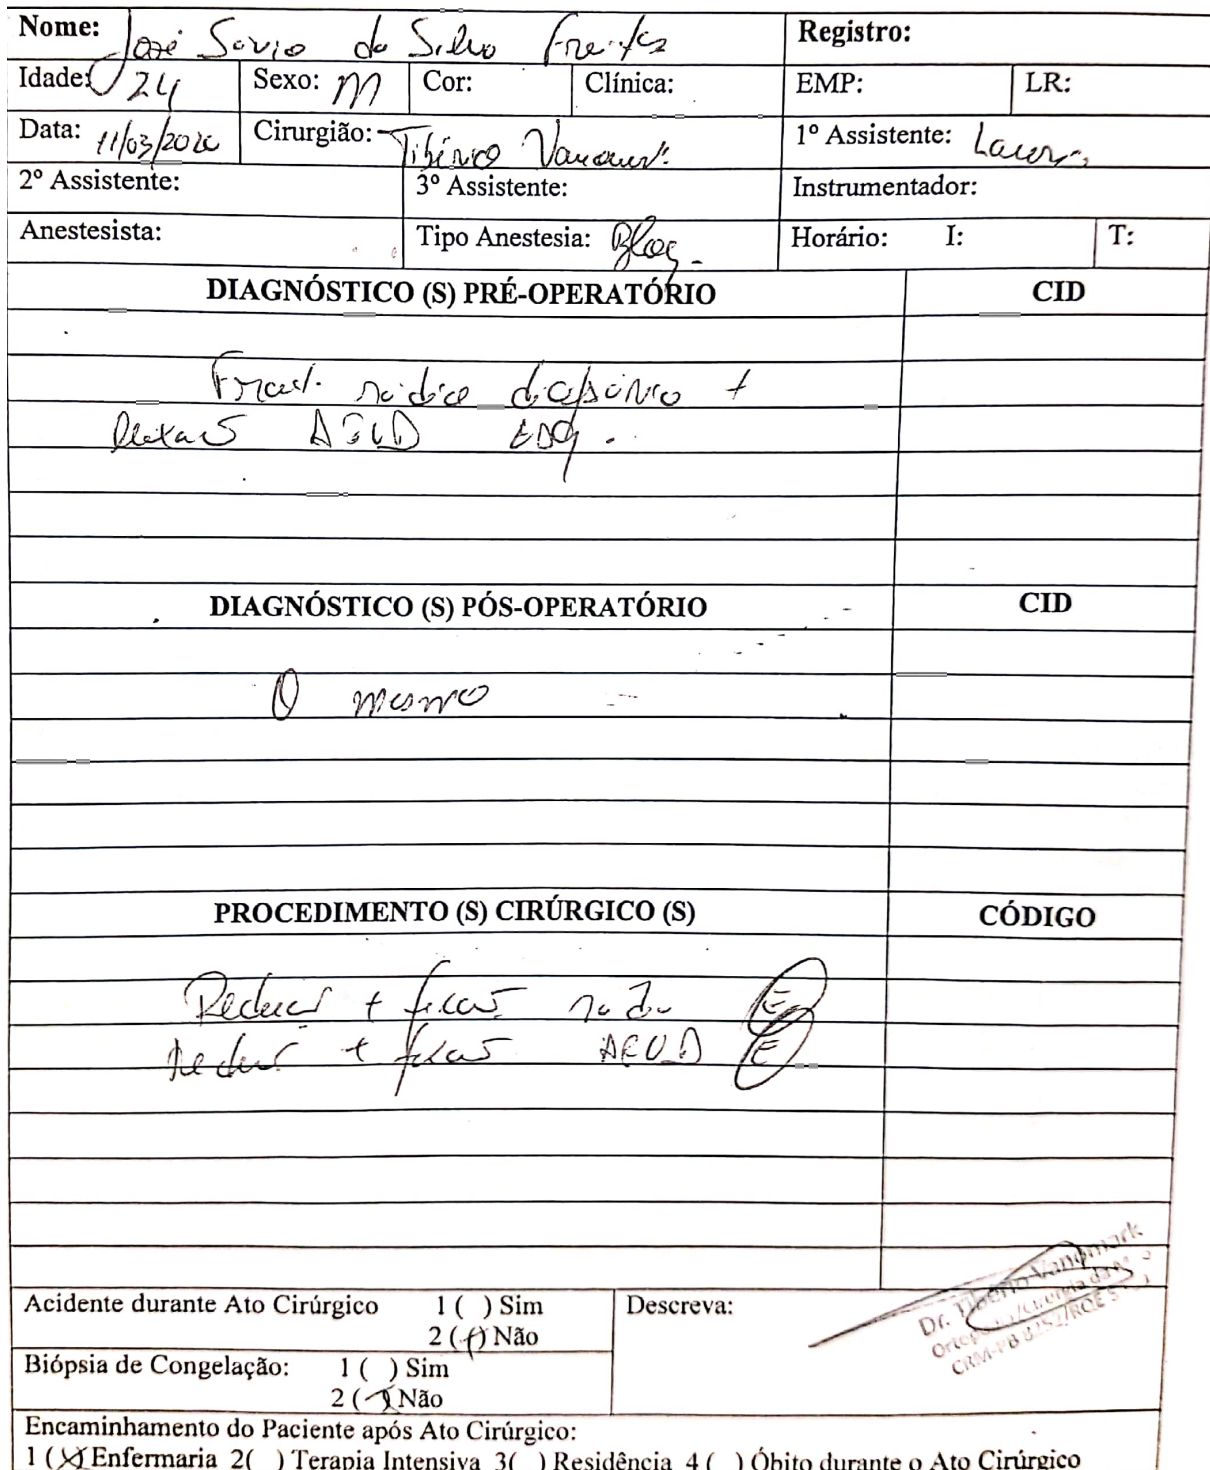 Nome: José Savio da Silva Freitas Registro:
Idade: 24 Sexo: M Cor: Clínica: EMP: LR:
Data: 11/03/2020 Cirurgião: Tibério 1º Assistente:
2º Assistente: 3º Assistente: Instrumentador:
Anestesista: Tipo Anestesia: Bloq. Horário: I: T:
DIAGNÓSTICO (S) PRÉ-OPERATÓRIO CID
Frat. +
DIAGNÓSTICO (S) PÓS-OPERATÓRIO CID
O mesmo
PROCEDIMENTO (S) CIRÚRGICO (S) CÓDIGO
+ E
+ E
Acidente durante Ato Cirúrgico 1 ( ) Sim Descreva:
2 (x) Não
Dr. Tiberio Vandmark
CRM-PB 8252/RQE
Biópsia de Congelação: 1 ( ) Sim
2 (x) Não
Encaminhamento do Paciente após Ato Cirúrgico:
1 (x) Enfermaria 2( ) Terapia Intensiva 3( ) Residência 4 ( ) Óbito durante o Ato Cirúrgico